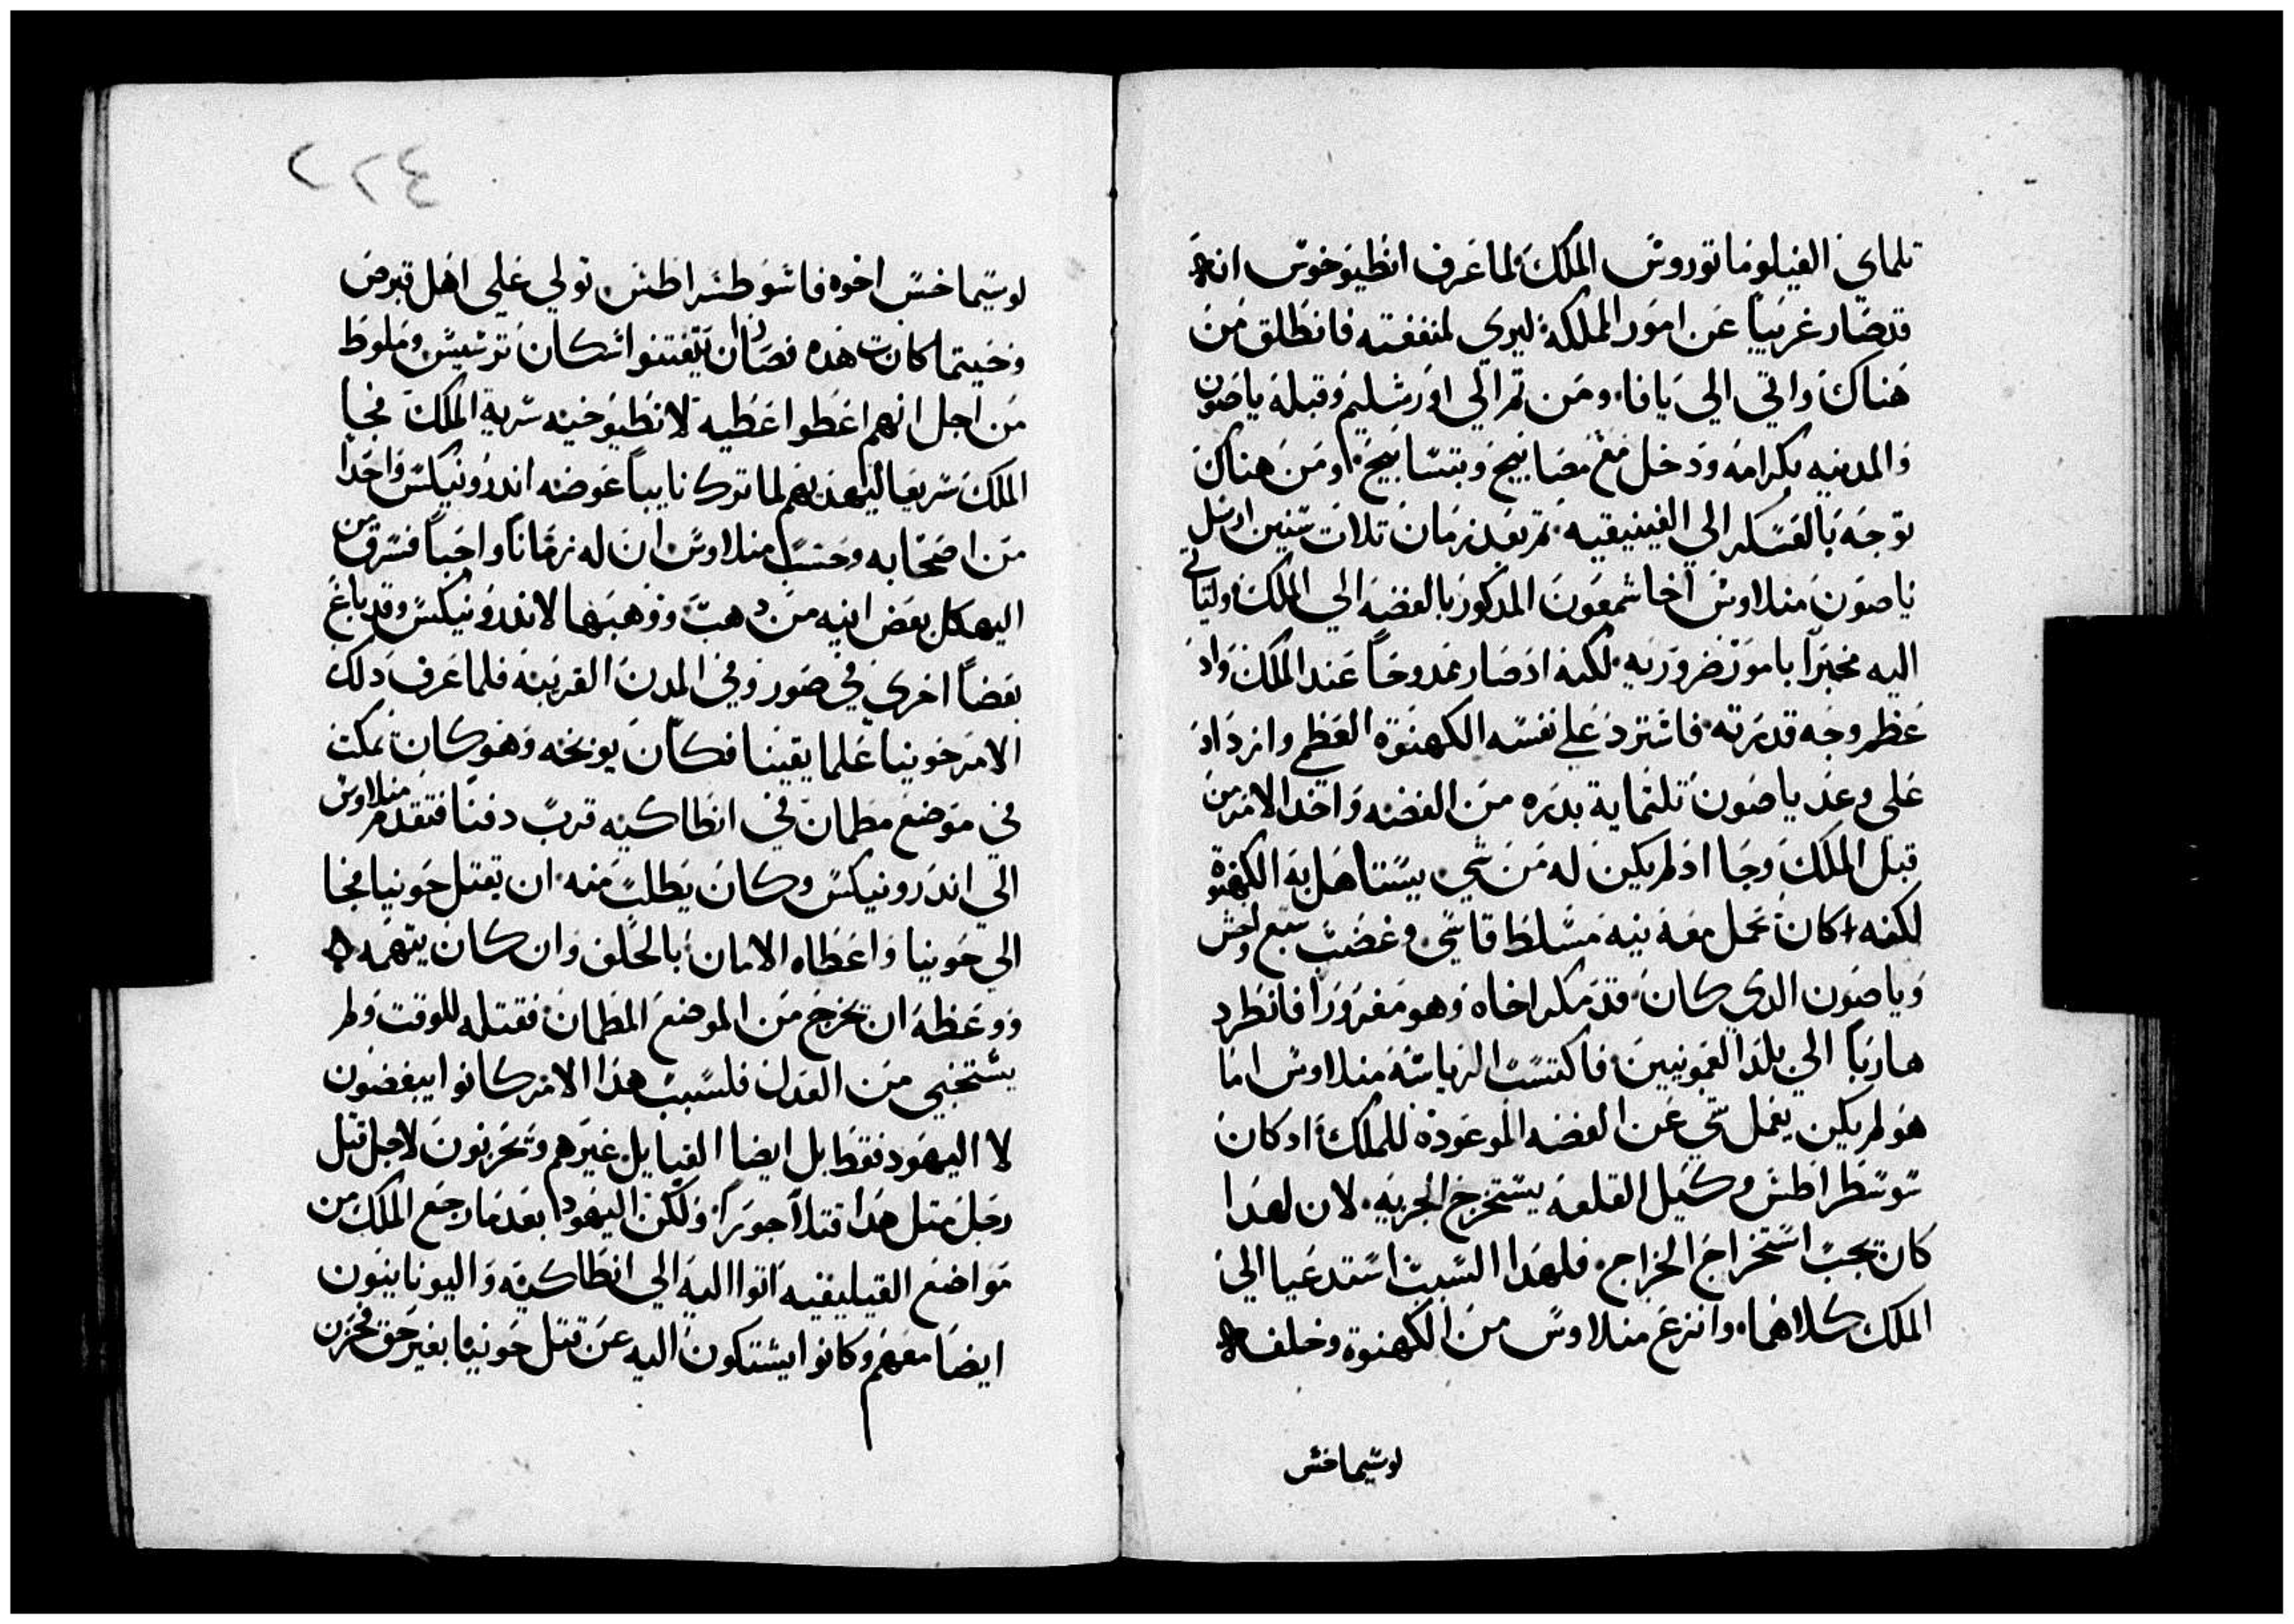 تلماي الفيلوماتوروش الملك لما عرف انطيوخوش انه
قد صار غريباً عن امور المملكة ليري لمنفعته فانطلق من
هناك واتي الي يافا ومن تم الي اورشليم وقبله ياصون
والمدينه بكرامه ودخل مع مصابيح وبتسابيح ومن هناك
توجه بالعسكر الي الفينيقيه تم بعد زمان تلات سنين ارسل
ياصون منلاوش اخا شمعون المدكور بالفضه الي الملك وليتاتي
اليه مخبراً بامور ضروريه لكنه اد صار ممدوحاً عند الملك واد
عظم وجه قدرته فاشترد علي نفسه الكهنوة العظمي وازداد
علي وعد ياصون تلتماية بدره من الفضه واخد الامر من
قبل الملك وجا اد لم يكن له من شي يستاهل به الكهنوة
لكنه كان يحمل معه نيه مسلط قاسي وغضب سبع وحش
وياصون الدي كان قد مكر اخاه وهو مغروراً فانطرد
هارباً الي بلد العمونيين فاكتسب الرياسة منلاوش اما
هو لم يكن يعمل شي عن الفضه الموعوده للملك اد كان
سوسطراطش وكيل القلعه يستخرج الجزيه لان لهدا
كان يجب استخراج الخراج فلهدا السبب استدعيا الي
الملك كلاهما وانزع منلاوش من الكهنوة وخلفه
لوسيماخش
٢٢٤
لوسيماخش اخوه فاسوطسراطش تولي علي اهل قبرص
وحيتما كانت هده فصار ان يتفتنوا سكان ترسيس وملوط
من اجل انهم اعطوا عطيه لانطيوخيه سرية الملك فجا
الملك سريعا ليهديهم لما ترك نايباً عوضه اندرونيكس واحدا
من اصحابه وحسب منلاوش ان له زماناً واجباً فسرق من
الهيكل بعض انيه من دهب ووهبها لاندرونيكس وقد باع
بعضاً اخري في صور وفي المدن القريبه فلما عرف دلك
الامر حونيا علما يقينا فكان يوبخه وهو كان يمكت
في موضع مطمان في انطاكيه قرب دفنا فتقدم منلاوش
الي اندرونيكس وكان يطلب منه ان يقتل حونيا فجا
الي حونيا واعطاه الامان بالحلف وان كان يتهمه
ووعظه ان يخرج من الموضع المطمان فقتله للوقت ولم
يستحيي من العدل فلسبب هدا الامر كانوا يبغضون
لا اليهود فقط بل ايضا القبايل غيرهم ويحزنون لاجل قتل
رجل متل هدا قتلاً جوراً ولكن اليهود بعد ما رجع الملك من
مواضع القيليقيه اتوا اليه الي انطاكيه واليونانيون
ايضا معهم وكانوا يشتكون اليه عن قتل حونيا بغير حق فحزن